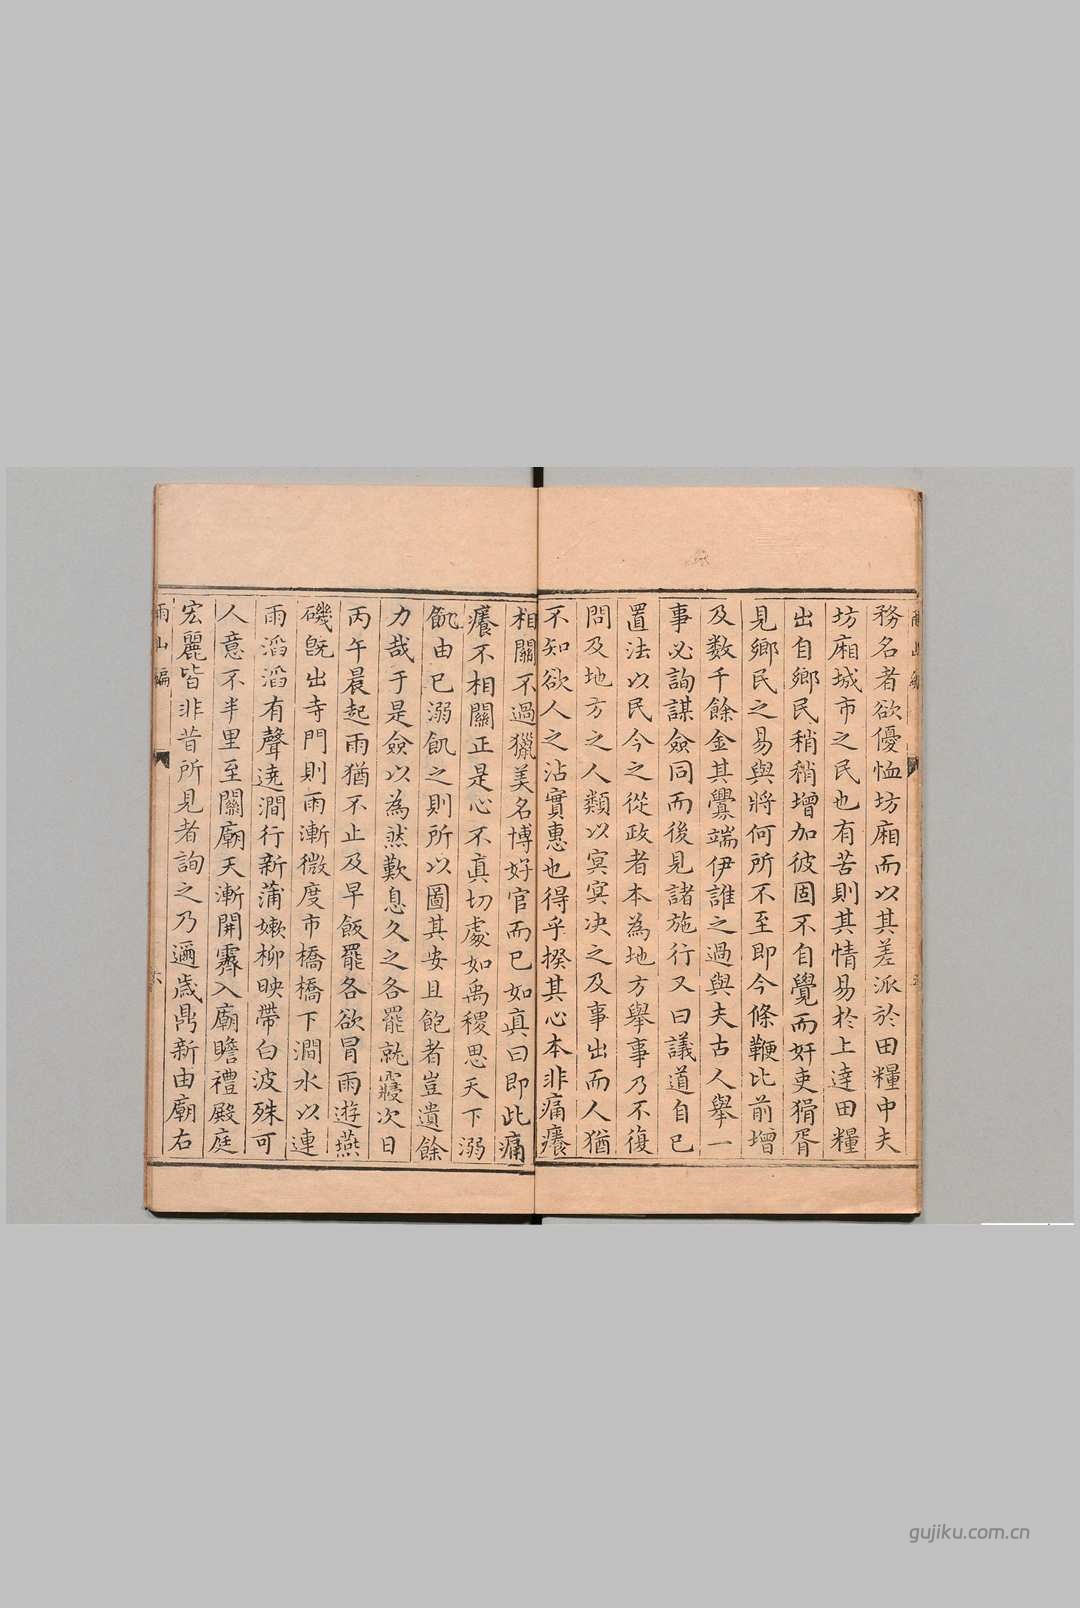 務名者欲優恤坊廂而以其差派於田糧中夫
坊廂城市之民也有苦則其情易於上達田糧
出自鄉民稍稍增加彼固不自覺而奸吏猾胥
見鄉民之易與將何所不至即今條鞭比前增
及数千餘金其釁端伊誰之過與夫古人舉一
事必詢謀僉同而後見諸施行又曰議道自已
置法以民今之從政者本為地方舉事乃不復
問及地方之人類以冥冥决之及事出而人猶
不知欲人之沾實惠也得乎揆其心本非痛癢
相關不過獵美名博好官而已如真曰即此痛
癢不相關正是心不真切處如禹稷思天下溺
飢由已溺飢之則所以圖其安且飽者豈遺餘
力哉于是僉以為然歎息久之各罷就寢次日
丙午晨起雨猶不止及早飯罷各欲冒雨遊燕
磯旣出寺門則雨漸微度市橋橋下澗水以連
雨滔滔有聲遶澗行新蒲嫰柳映帶白波殊可
人意不半里至關廟天漸開霽入廟瞻禮殿庭
宏麗皆非昔所見者詢之乃邇歲鼎新由廟右
雨山編
六
gujiku.com.cn